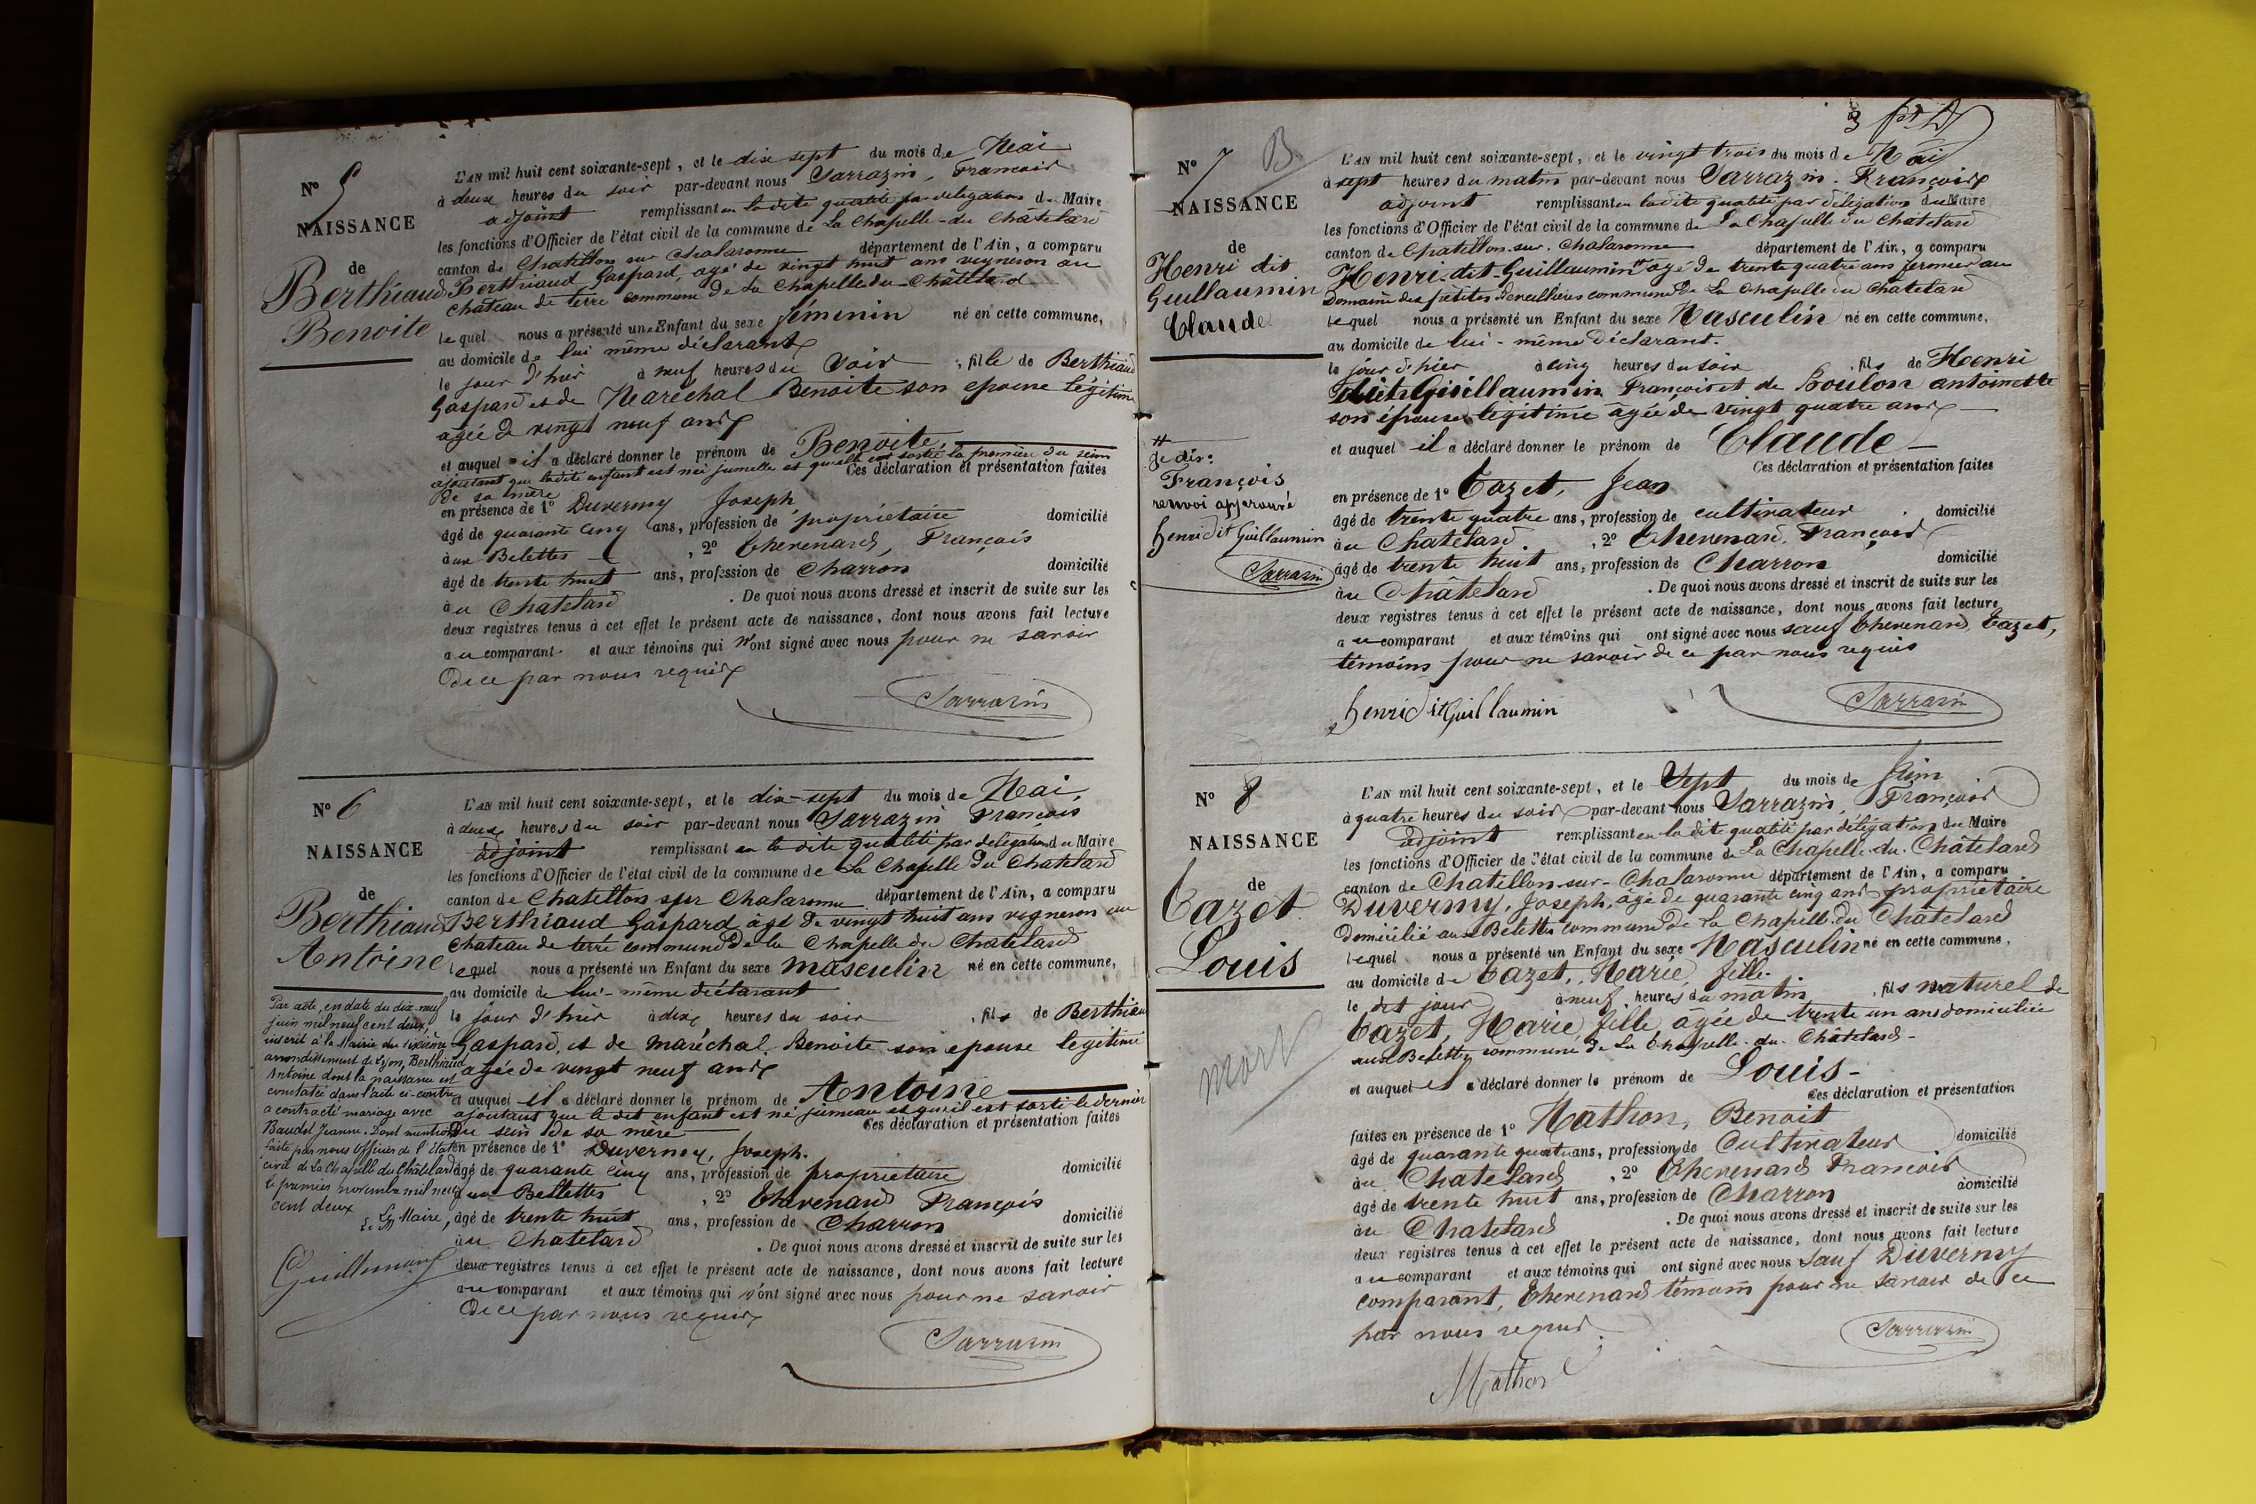 N° 5
NAISSANCE
de
Berthiaud
Benoite
L'AN mil huit cent soixante-sept, et le dix sept du mois de Mai
à deux heures du soir par-devant nous Sarrazin, François
adjoint remplissant en la dite qualité par délégation du Maire
les fonctions d'Officier de l'état civil de la commune de La Chapelle-du Châtelard
canton de Chatillon sur Chalaronne département de l'Ain, a comparu
Berthiaud Gaspard, agé de vingt huit ans vigneron au
chateau de terre commune de La Chapelle du Châtelard
lequel nous a présenté une Enfant du sexe féminin né en cette commune,
au domicile de lui même déclarant
le jour d'hier à neuf heures du soir, fille de Berthiaud
Gaspard et de Maréchal Benoite son épouse légitime
agée de vingt neuf ans
et auquel il a déclaré donner le prénom de Benoite,
ajoutant que la dite enfant est née jumelle et qu'elle est sortie la première du sein
de sa mère Ces déclaration et présentation faites
en présence de 1° Duverny Joseph
âgé de quarante cinq ans, profession de propriétaire domicilié
aux Belettes, 2° Thevenard, François
âgé de trente huit ans, profession de Charron domicilié
au Chatelard. De quoi nous avons dressé et inscrit de suite sur les
deux registres tenus à cet effet le présent acte de naissance, dont nous avons fait lecture
au comparant et aux témoins qui n'ont signé avec nous pour ne savoir
de ce par nous requis
Sarrazin
N° 6
NAISSANCE
de
Berthiaud
Antoine
Par acte, en date du dix-neuf
juin mil neuf cent deux,
inscrit à la Mairie du sixième
arrondissement de Lyon, Berthiaud
Antoine dont la naissance est
constatée dans l'acte ci-contre
a contracté mariage avec
Baudet Jeanne. Dont mention
faite par nous Officier de l'état
civil de La Chapelle du Châtelard
le premier novembre mil neuf
cent deux
Le Maire,
Guillemain
L'AN mil huit cent soixante-sept, et le dix-sept du mois de Mai,
à deux heures du soir par-devant nous Sarrazin François
adjoint remplissant en la dite qualité par délégation du Maire
les fonctions d'Officier de l'état civil de la commune de La Chapelle du Chatelard
canton de Chatillon sur Chalaronne département de l'Ain, a comparu
Berthiaud Gaspard âgé de vingt huit ans vigneron au
chateau de terre commune de la Chapelle du Chatelard
lequel nous a présenté un Enfant du sexe masculin né en cette commune,
au domicile de lui-même déclarant
le jour d'hier à dix heures du soir, fils de Berthiaud
Gaspard, et de maréchal Benoite son epouse legitime
agée de vingt neuf ans
et auquel il a déclaré donner le prénom de Antoine
ajoutant que le dit enfant est né jumeau et qu'il est sorti le dernier
du sein de sa mère Ces déclaration et présentation faites
en présence de 1° Duverny, Joseph.
âgé de quarante cinq ans, profession de propriétaire domicilié
aux Bellettes, 2° Thevenard François
âgé de trente huit ans, profession de Charron domicilié
au Chatelard. De quoi nous avons dressé et inscrit de suite sur les
deux registres tenus à cet effet le présent acte de naissance, dont nous avons fait lecture
au comparant et aux témoins qui n'ont signé avec nous pour ne savoir
de ce par nous requis
Sarrazin
3
N° 7 B
NAISSANCE
de
Henri dit
Guillaumin
Claude
je dis:
François
renvoi approuvé
henri dit Guillaumin
Sarrazin
L'AN mil huit cent soixante-sept, et le vingt trois du mois de Mai
à sept heures du matin par-devant nous Sarrazin. François
adjoint remplissant en la dite qualité par délégation du Maire
les fonctions d'Officier de l'état civil de la commune de La Chapelle du Chatelard
canton de Chatillon-sur-Chalaronne département de l'Ain, a comparu
Henri-dit-Guillaumin # agé de trente quatre ans fermier au
Domaine des petites commune de La Chapelle du Chatelard
lequel nous a présenté un Enfant du sexe Masculin né en cette commune,
au domicile de lui-même déclarant.
le jour d'hier à cinq heures du soir, fils de Henri
dit Guillaumin François et de Boulon antoinette
son épouse légitime âgée de vingt quatre ans
et auquel il a déclaré donner le prénom de Claude
Ces déclaration et présentation faites
en présence de 1° Cazet, Jean
âgé de trente quatre ans, profession de cultivateur domicilié
au Chatelard, 2° Thevenard, François
âgé de trente huit ans, profession de Charron domicilié
au Châtelard. De quoi nous avons dressé et inscrit de suite sur les
deux registres tenus à cet effet le présent acte de naissance, dont nous avons fait lecture
au comparant et aux témoins qui ont signé avec nous sauf Thevenard, Cazet,
témoins pour ne savoir de ce par nous requis
henri dit Guillaumin Sarrazin
N° 8
NAISSANCE
de
Cazet
Louis
mort
L'AN mil huit cent soixante-sept, et le Sept du mois de Juin
à quatre heures du soir par-devant nous Sarrazin, François
adjoint remplissant en la dite qualité par délégation du Maire
les fonctions d'Officier de l'état civil de la commune de La Chapelle-du-Châtelard
canton de Chatillon-sur-Chalaronne département de l'Ain, a comparu
Duverny, Joseph, âgé de quarante cinq ans propriétaire
domicilié aux Belettes commune de La Chapelle du Chatelard
lequel nous a présenté un Enfant du sexe Masculin né en cette commune,
au domicile de Cazet, Marie, fille.
le dit jour à neuf heures du matin, fils naturel de
Cazet, Marie fille, âgée de trente un ans domiciliée
aux Belettes commune de La Chapelle-du-Châtelard-
et auquel il a déclaré donner le prénom de Louis-
Ces déclaration et présentation
faites en présence de 1° Mathon, Benoit
âgé de quarante quatre ans, profession de Cultivateur domicilié
au Chatelard, 2° Thevenard François
âgé de trente huit ans, profession de Charron domicilié
au Chatelard. De quoi nous avons dressé et inscrit de suite sur les
deux registres tenus à cet effet le présent acte de naissance, dont nous avons fait lecture
au comparant et aux témoins qui ont signé avec nous sauf Duverny
comparant, Thevenard témoin pour ne savoir de ce
par nous requis.
Sarrazin
Mathon